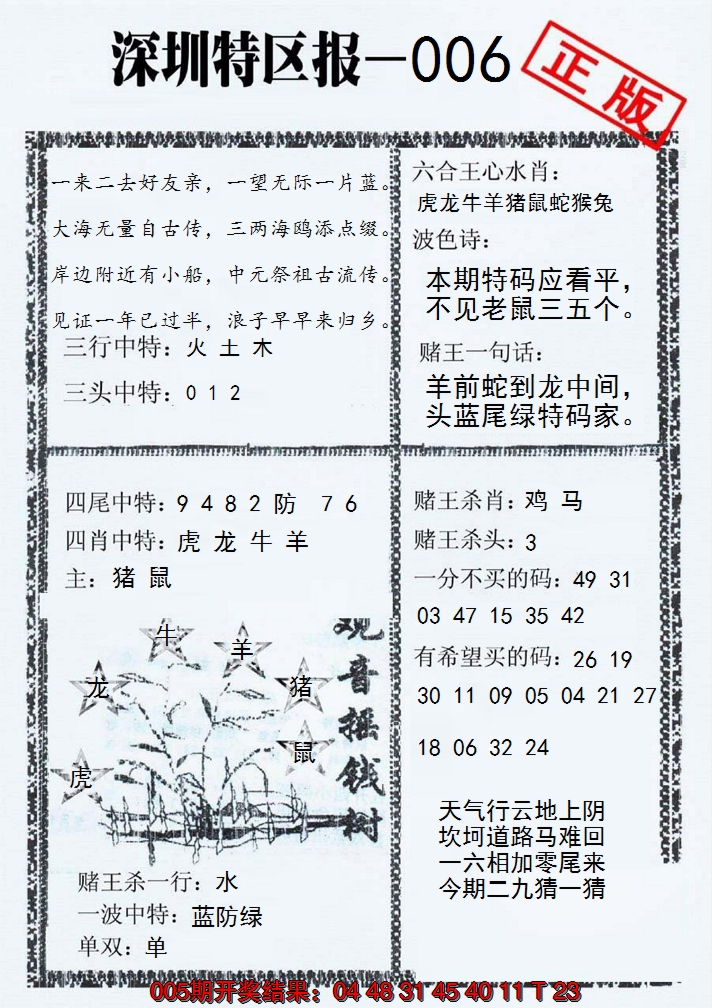 深圳特区报—006
正版
一来二去好友亲，一望无际一片蓝。
大海无量自古传，三两海鸥添点缀。
岸边附近有小船，中元祭祖古流传。
见证一年已过半，浪子早早来归乡。
三行中特：火 土 木
三头中特：0 1 2
六合王心水肖：
虎龙牛羊猪鼠蛇猴兔
波色诗：
本期特码应看平，
不见老鼠三五个。
赌王一句话：
羊前蛇到龙中间，
头蓝尾绿特码家。
四尾中特：9 4 8 2 防 7 6
四肖中特：虎 龙 牛 羊
主：猪 鼠
牛
羊
龙
猪
鼠
虎
观音摇钱树
赌王杀一行：水
一波中特：蓝防绿
单双：单
赌王杀肖：鸡 马
赌王杀头：3
一分不买的码：49 31
03 47 15 35 42
有希望买的码：26 19
30 11 09 05 04 21 27
18 06 32 24
天气行云地上阴
坎坷道路马难回
一六相加零尾来
今期二九猜一猜
005期开奖结果：04 48 31 45 40 11 T 23